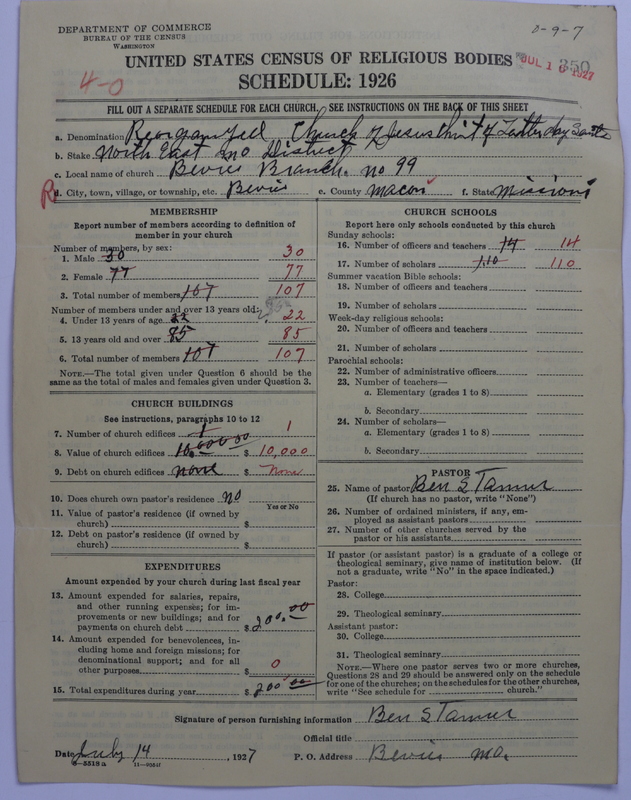 DEPARTMENT OF COMMERCE
BUREAU OF THE CENSUS
WASHINGTON
0-9-7
UNITED STATES CENSUS OF RELIGIOUS BODIES
JUL 16 1927
350
SCHEDULE: 1926
4-0
FILL OUT A SEPARATE SCHEDULE FOR EACH CHURCH. SEE INSTRUCTIONS ON THE BACK OF THIS SHEET
a. Denomination Reorganized Church of Jesus Christ of Latter day Saints
b. Stake North East Mo District
c. Local name of church Bevier Branch. no 99
R
d. City, town, village, or township, etc. Bevier e. County Macon f. State Missouri
MEMBERSHIP
Report number of members according to definition of
member in your church
Number of members, by sex:
1. Male 30 30
2. Female 77 77
3. Total number of members 107 107
Number of members under and over 13 years old:
4. Under 13 years of age 22 22
5. 13 years old and over 85 85
6. Total number of members 107 107
NOTE.—The total given under Question 6 should be
same as the total of males and females given under Question 3.
CHURCH BUILDINGS
See instructions, paragraphs 10 to 12
7. Number of church edifices 1 1
8. Value of church edifices 10,000 00 $ 10,000
9. Debt on church edifices none $ None
10. Does church own pastor's residence no
Yes or No
11. Value of pastor's residence (if owned by
church) $
12. Debt on pastor's residence (if owned by
church) $
EXPENDITURES
Amount expended by your church during last fiscal year
13. Amount expended for salaries, repairs,
and other running expenses; for im-
provements or new buildings; and for
payments on church debt $ 200.00
14. Amount expended for benevolences, in-
cluding home and foreign missions; for
denominational support; and for all
other purposes $ 0
15. Total expenditures during year $ 200 00
CHURCH SCHOOLS
Report here only schools conducted by this church
Sunday schools:
16. Number of officers and teachers 14 14
17. Number of scholars 110 110
Summer vacation Bible schools:
18. Number of officers and teachers
19. Number of scholars
Week-day religious schools:
20. Number of officers and teachers
21. Number of scholars
Parochial schools:
22. Number of administrative officers
23. Number of teachers—
a. Elementary (grades 1 to 8)
b. Secondary
24. Number of scholars—
a. Elementary (grades 1 to 8)
b. Secondary
PASTOR
25. Name of pastor Ben S Tanner
(If church has no pastor, write "None")
26. Number of ordained ministers, if any, em-
ployed as assistant pastors
27. Number of other churches served by the
pastor or his assistants
If pastor (or assistant pastor) is a graduate of a college or
theological seminary, give name of institution below. (If
not a graduate, write "No" in the space indicated.)
Pastor:
28. College
29. Theological seminary
Assistant pastor:
30. College
31. Theological seminary
NOTE.—Where one pastor serves two or more churches,
Questions 28 and 29 should be answered only on the schedule
for one of the churches; on the schedules for the other churches,
write "See schedule for church."
Signature of person furnishing information Ben S. Tanner
Official title
Date July 14, 1927 P. O. Address Bevier Mo.
8-5518a